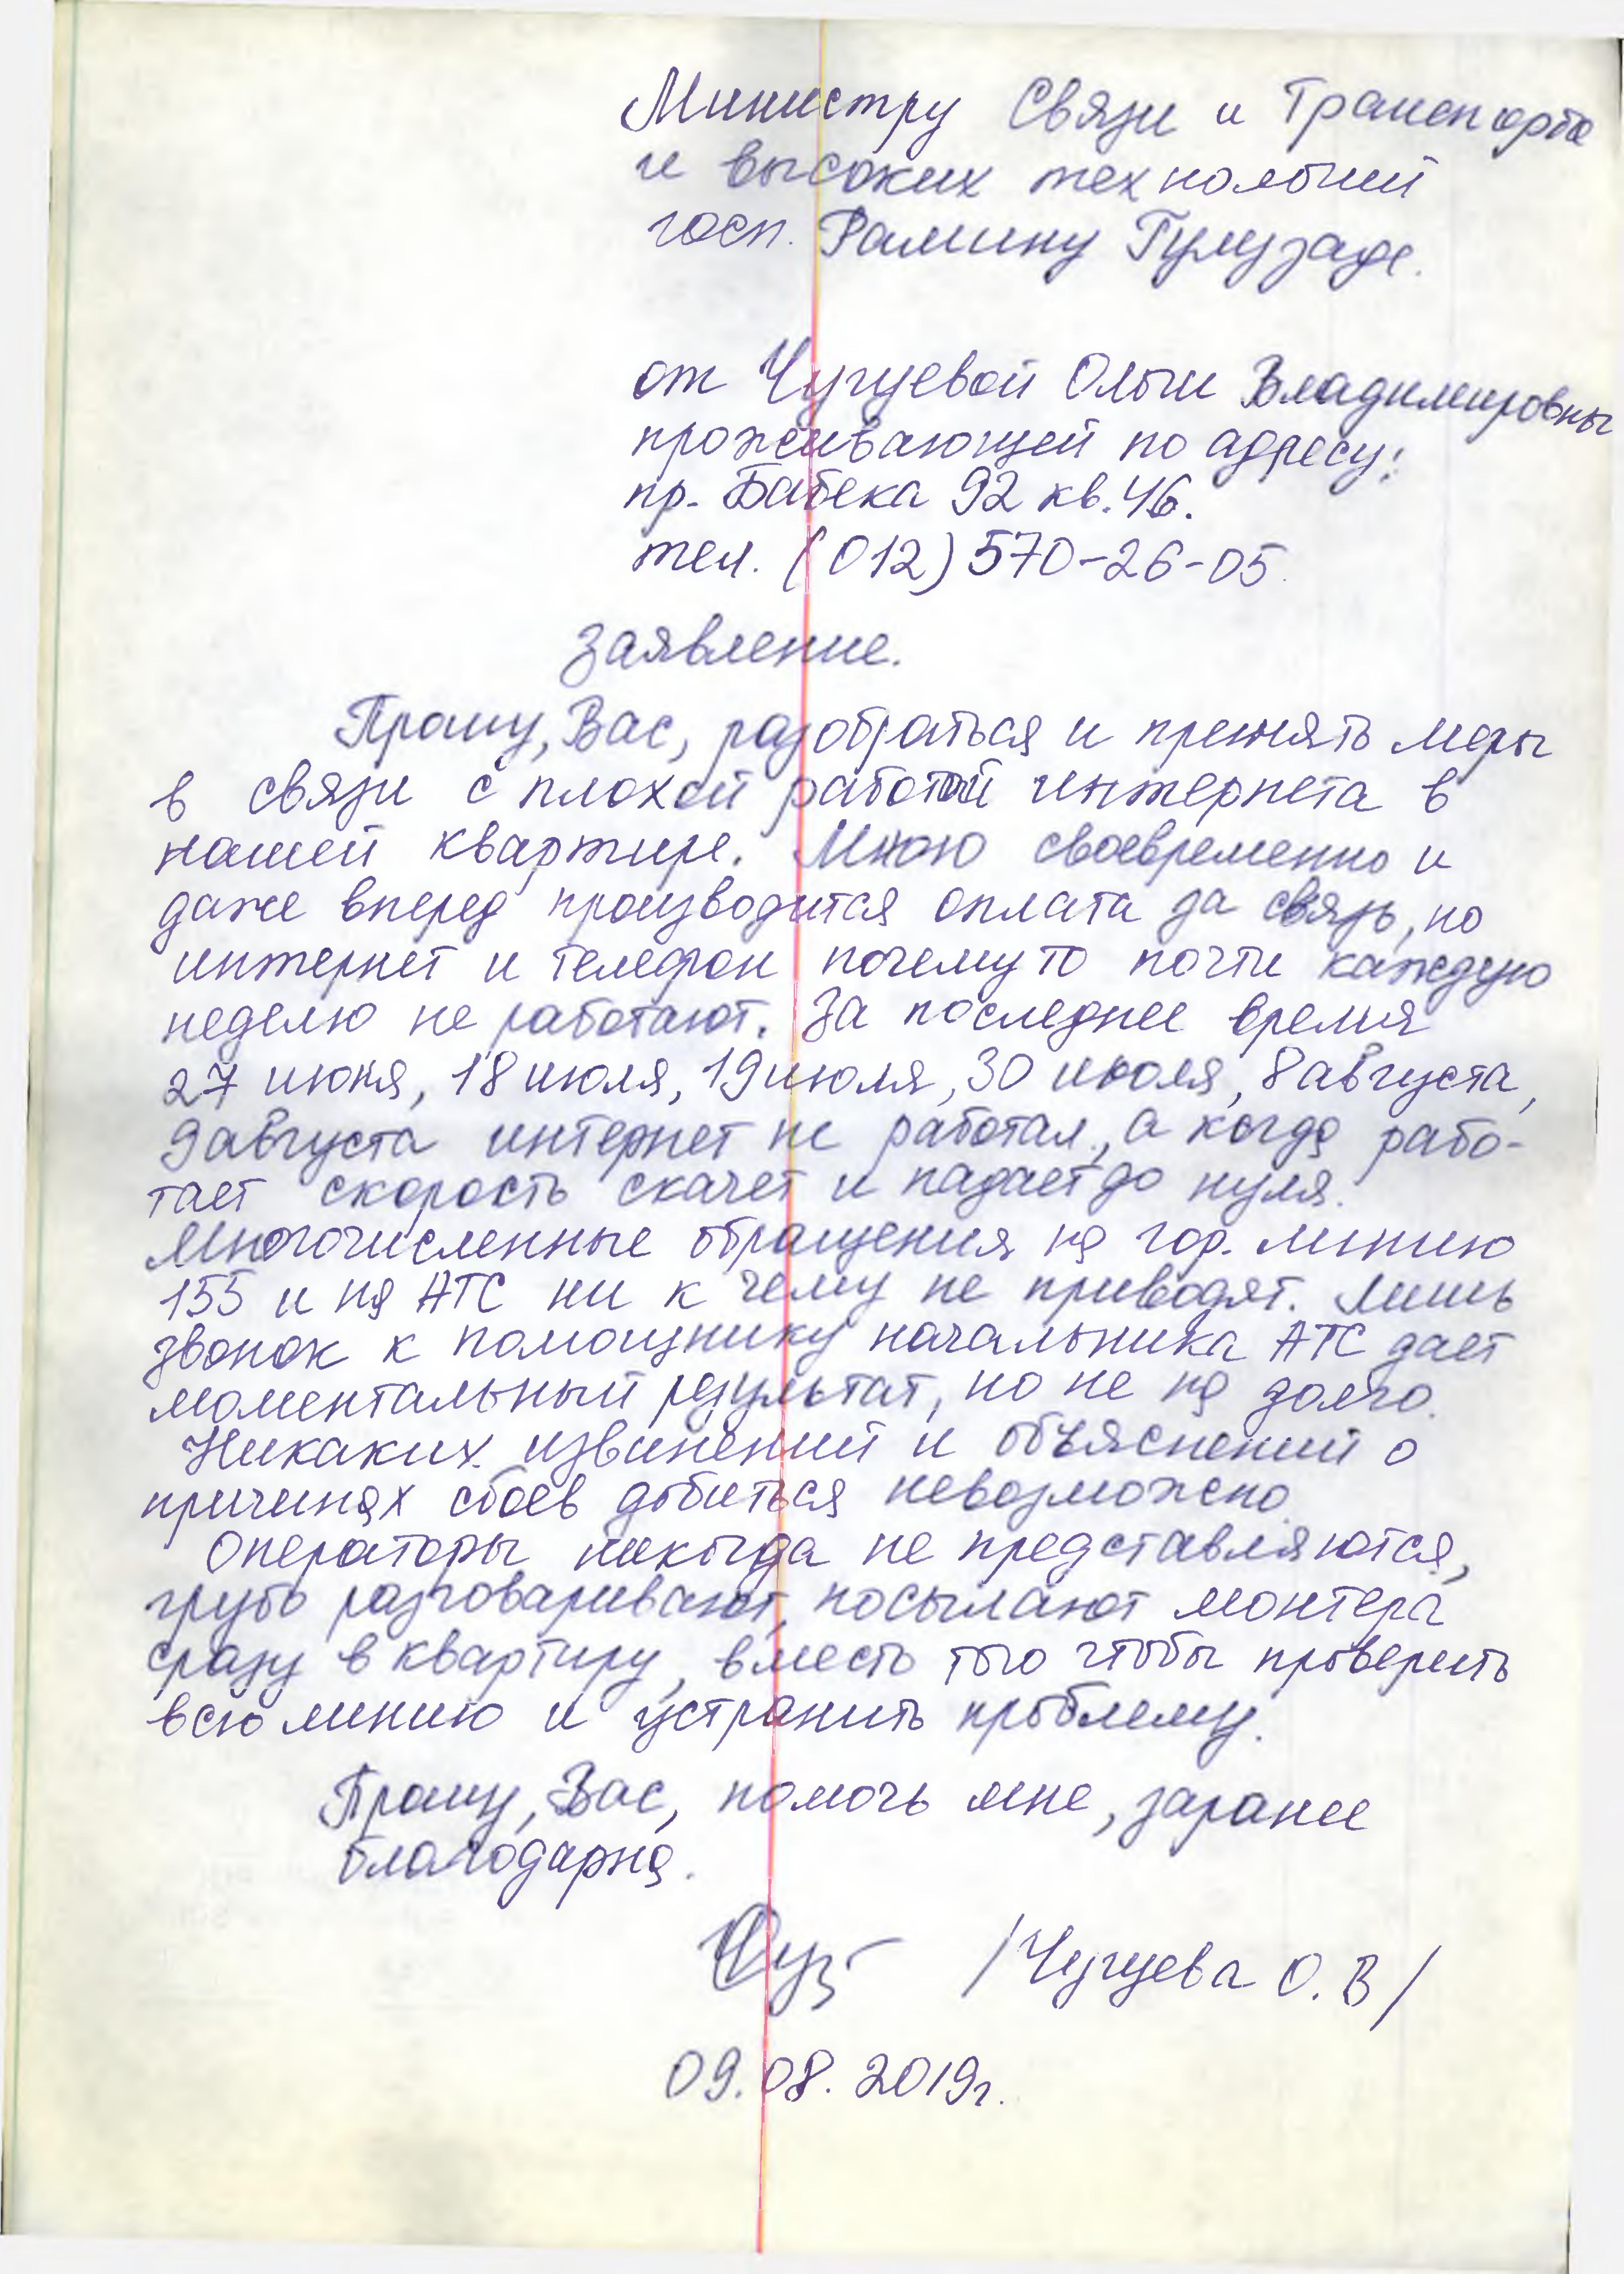 Министру Связи и Транспорта
и высоких технологий
госп. Рамину Гулузаде.
от Чугуевой Ольги Владимировны
проживающей по адресу:
пр. Бабека 92 кв. 46.
тел. (012) 570-26-05.
Заявление.
Прошу, Вас, разобраться и принять меры
в связи с плохой работой интернета в
нашей квартире. Мною своевременно и
даже вперед производится оплата за связь, но
интернет и телефон почему то почти каждую
неделю не работают. За последнее время
27 июня, 18 июля, 19 июля, 30 июля, 8 августа,
9 августа интернет не работал, а когда рабо-
тает скорость скачет и падает до нуля.
Многочисленные обращения на гор. линию
155 и на АТС ни к чему не приводят. Лишь
звонок к помощнику начальника АТС дает
моментальный результат, но не на долго.
Никаких извинений и объяснений о
причинах сбоев добиться невозможно.
Операторы никогда не представляются,
грубо разговаривают, посылают монтера
сразу в квартиру, вместо того чтобы проверить
всю линию и устранить проблему.
Прошу, Вас, помочь мне, заранее
благодарна.
/Чугуева О. В/
09.08.2019г.